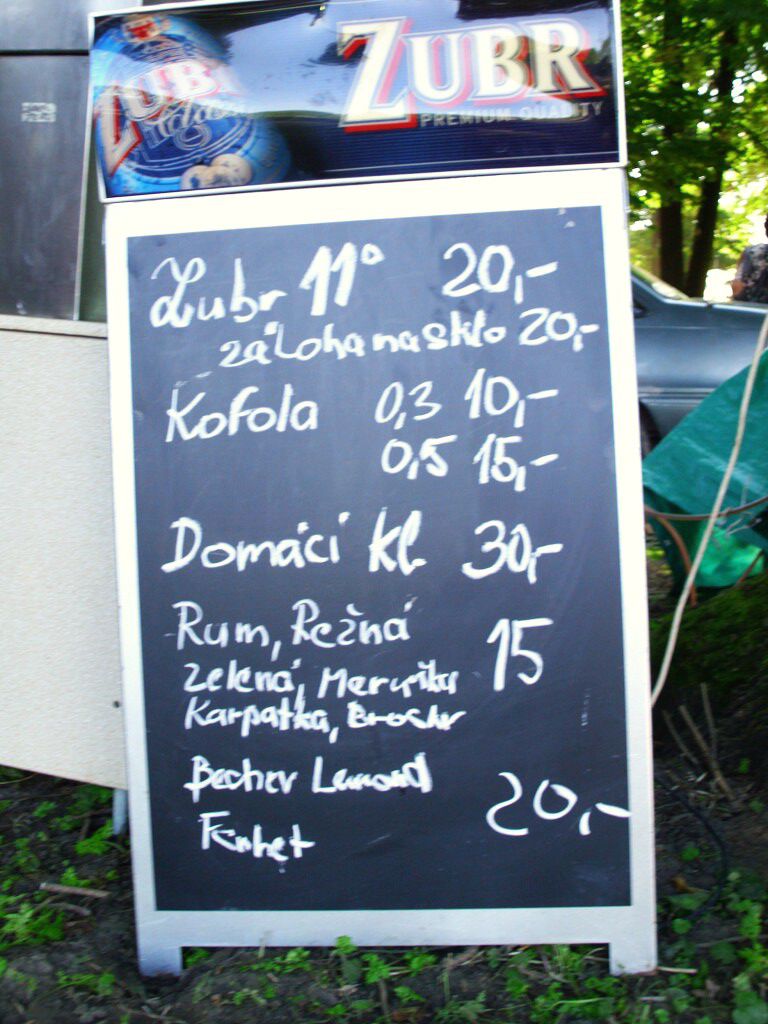 ZUBR
PREMIUM QUALITY
ZUBR
Zubr 11° 20,-
záLoha na sklo 20,-
Kofola 0,3 10,-
0,5 15,-
Domácí kl. 30,-
Rum, Režná
Zelená, Meruňka 15
Karpatka,
Becher Lemond
Fernet 20,-